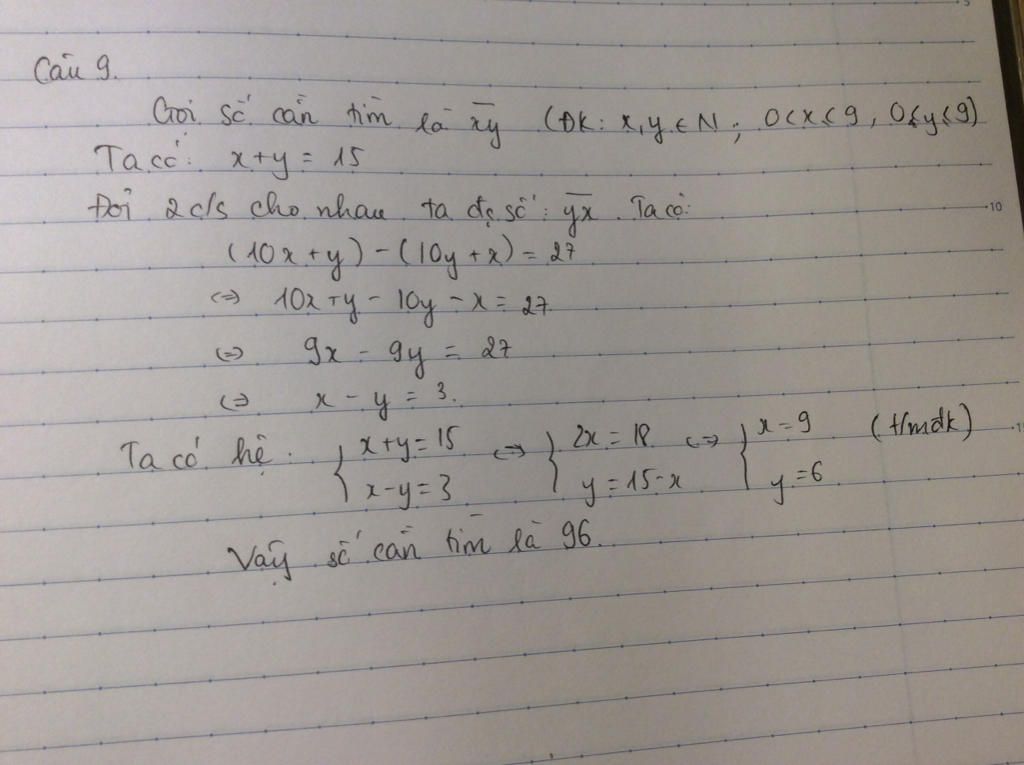 Câu 9.
Gọi số cần tìm là x̅y̅ (ĐK: x,y ∈ N; 0<x≤9, 0≤y≤9)
Ta có: x+y = 15
Đổi 2 c/s cho nhau ta đc số: y̅x̅. Ta có:
(10x+y) - (10y+x) = 27
<=> 10x+y - 10y - x = 27
<=> 9x - 9y = 27
<=> x - y = 3.
Ta có hệ: { x+y=15 ; x-y=3 <=> { 2x=18 ; y=15-x <=> { x=9 ; y=6 (t/mđk)
Vậy số cần tìm là 96.
10